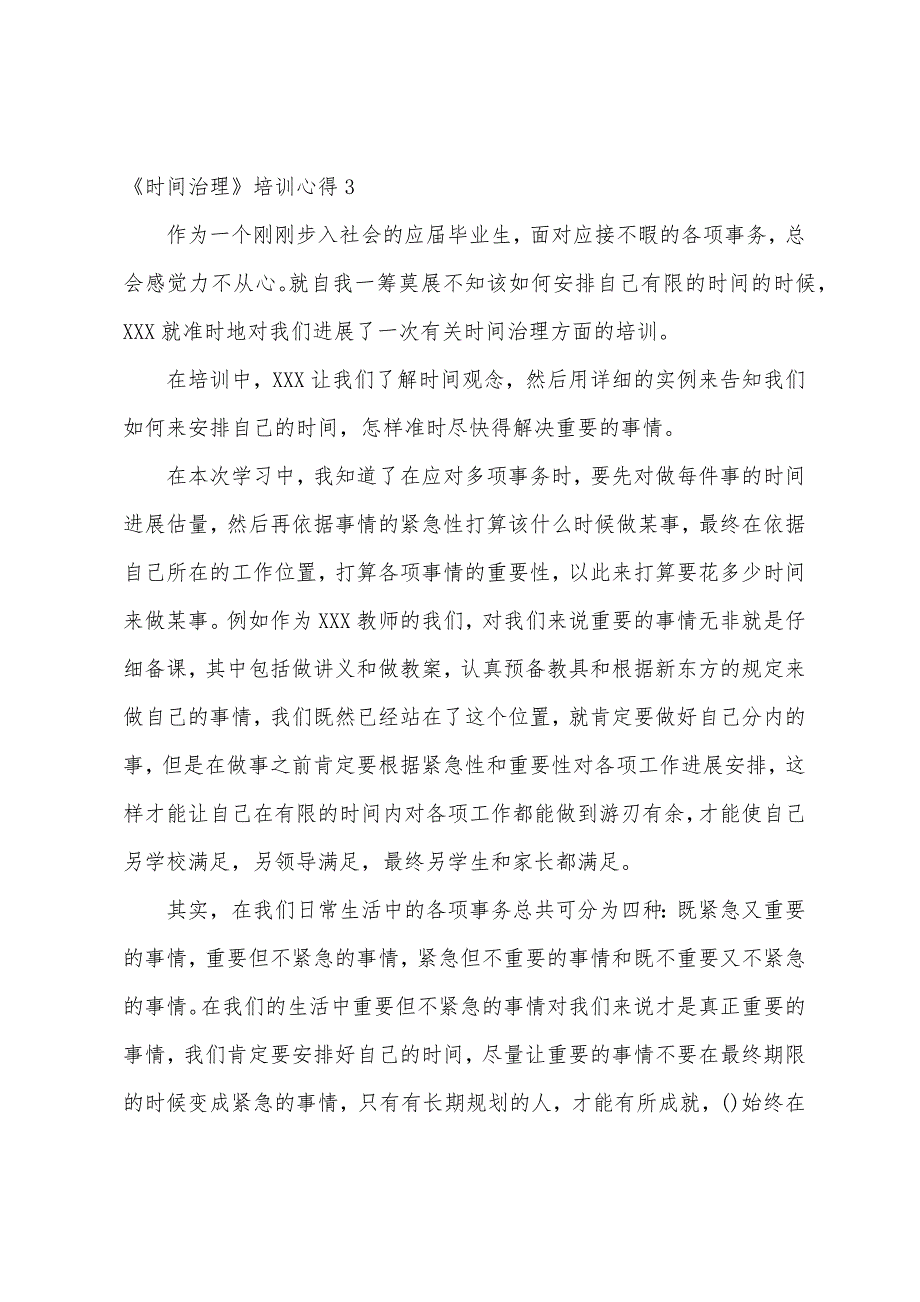 《时间治理》培训心得 3
作为一个刚刚步入社会的应届毕业生，面对应接不暇的各项事务，总
会感觉力不从心。就自我一筹莫展不知该如何安排自己有限的时间的时候，
XXX 就准时地对我们进展了一次有关时间治理方面的培训。
在培训中，XXX 让我们了解时间观念，然后用详细的实例来告知我们
如何来安排自己的时间，怎样准时尽快得解决重要的事情。
在本次学习中，我知道了在应对多项事务时，要先对做每件事的时间
进展估量，然后再依据事情的紧急性打算该什么时候做某事，最终在依据
自己所在的工作位置，打算各项事情的重要性，以此来打算要花多少时间
来做某事。例如作为 XXX 教师的我们，对我们来说重要的事情无非就是仔
细备课，其中包括做讲义和做教案，认真预备教具和根据新东方的规定来
做自己的事情，我们既然已经站在了这个位置，就肯定要做好自己分内的
事，但是在做事之前肯定要根据紧急性和重要性对各项工作进展安排，这
样才能让自己在有限的时间内对各项工作都能做到游刃有余，才能使自己
另学校满足，另领导满足，最终另学生和家长都满足。
其实，在我们日常生活中的各项事务总共可分为四种：既紧急又重要
的事情，重要但不紧急的事情，紧急但不重要的事情和既不重要又不紧急
的事情。在我们的生活中重要但不紧急的事情对我们来说才是真正重要的
事情，我们肯定要安排好自己的时间，尽量让重要的事情不要在最终期限
的时候变成紧急的事情，只有有长期规划的人，才能有所成就，()始终在